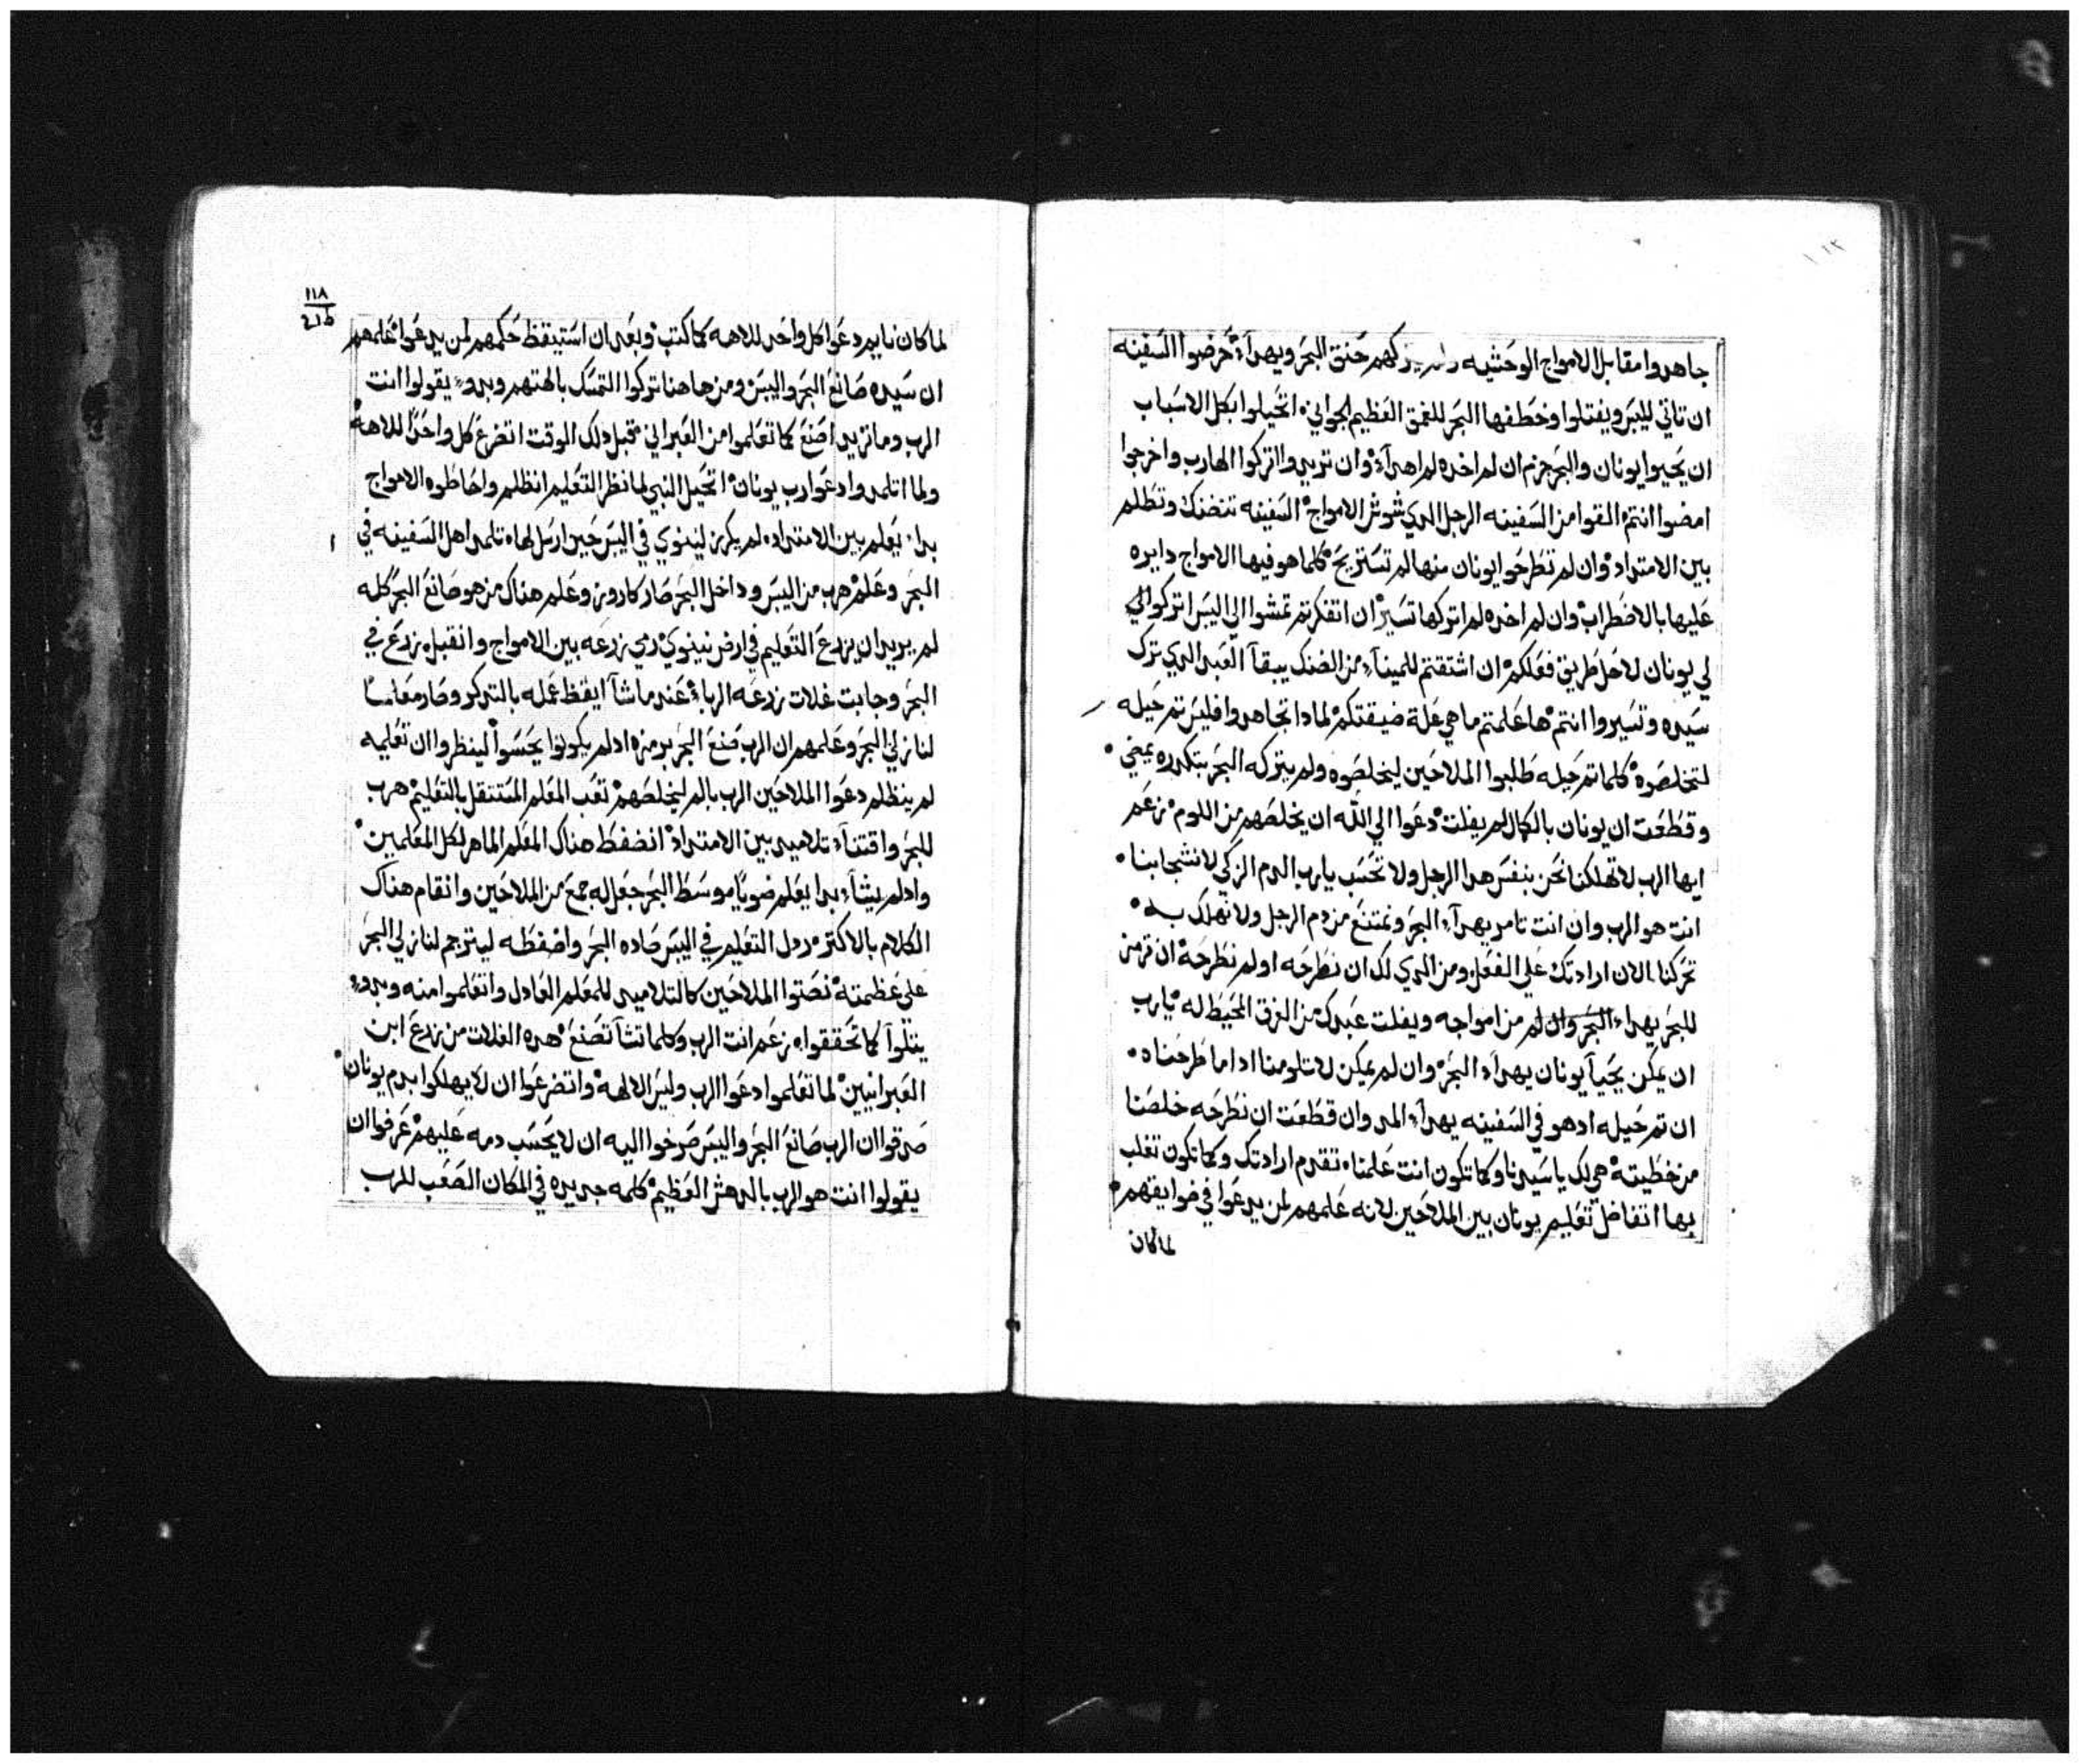 جاهدوا مقابل الامواج الوحشيه كهم حنق البحر ويهدآء حرضوا السفينه
ان تاتي لليبس ويفتلوا وخطفها البحر للغمق العظيم الجواني اتحيلوا بكل الاسباب
ان يحيوا يونان والبحر جزم ان لم اخده لم اهدآء وان تريدوا اتركوا الهارب واخرجوا
امضوا انتم القوا من السفينه الرجل الدي شوش الامواج السفينه تتضنك وتطلم
بين الامتداد وان لم تطرحوا يونان منها لم تستريح كلما هو فيها الامواج دايره
عليها بالاضطراب وان لم اخده لم اتركها تسير ان اتفكرتم تمشوا الي اليبس اتركوا الي
لي يونان لاحل طريق فعلكم ان اشتقتم للمينآء من الضنك يبقآ العبد الدي ترك
سيده وتسيروا انتم ها علمتم ما هي علة ضيقتكم لمادا تجاهدوا فليس تم حيله
لتخلصوه كلما تم حيله طلبوا الملاحين ليخلصوه ولم يتركه البحر بتكدره يمضي
وقطعت ان يونان بالكمال لم يفلت دعوا الي الله ان يخلصهم من اللوم زعم
ايها الرب لا تهلكنا نحن بنفس هدا الرجل ولا تحسب يا رب الدم الزكي لانشجابنا
انت هو الرب وان انت تامر يهدآء البحر ونمتنع من دم الرجل ولا نهلك به
تحركنا الان ارادتك علي الفعل ومن الدي لك ان نطرحه او لم نطرحه ان ترمز
للبحر يهداء البحر وان لم من امواجه ويفلت عبدك من الغرق المحيط له يا رب
ان يمكن يحيآ يونان يهدآء البحر وان لم يمكن لا تلومنا ادا ما طرحناه
ان تم حيله اد هو في السفينه يهدآء المد وان قطعت ان نطرحه خلصنا
من خطيته هي لك يا سيدنا وكما تكون انت علمناه تقدم ارادتك وكما تكون تغلب
بها اتفاضل تعليم يونان بين الملاحين لانه علمهم لمن يدعوا في ضوايقهم
لما كان
١١٨
لما كان نايم دعوا كل واحد للاهه كما كتب وبعد ان استيقظ حكمهم لمن يدعوا علمهم
ان سيده صانع البحر واليبس ومن هاهنا تركوا التمسك بالهتهم وبدوء يقولوا انت
الرب وما تريد اصنع كما تعلموا من العبراني قبل دلك الوقت اتضرع كل واحدًا للاهه
ولما اتلمدوا دعوا رب يونان اتحيل النبي لما نظر التعليم انظلم واحاطوه الامواج
بدا يعلم بين الامتداد لم يكرز لنينوي في اليبس حين ارسل لها تلمد اهل السفينه في
البحر وعلم هرب من اليبس وداخل البحر صار كاروز وعلم هناك من هو صانع البحر كله
لم يريد ان يزرع التعليم في ارض نينوي رمي زرعه بين الامواج وانقبل زرع في
البحر وجابت غلات زرعه الرباء عند ما شآ ايقظ عمله بالتدكر وصار معلمًا
لنازلي البحر وعلمهم ان الرب صنع البحر برمزه اد لم يكونوا يحسوا لينظروا ان تعليمه
لم ينظلم دعوا الملاحين الرب بالم ليخلصهم تعب المعلم المتنقل بالتعليم هرب
للبحر واقتنآء تلاميد بين الامتداد انضفط هناك المعلم الماهر لكل المعلمين
واد لم يشآء بدا يعلم ضويا موسط البحر جعل له جمع من الملاحين وانقام هناك
الكلام بالاكتر ردل التعليم في اليبس صاده البحر واضفطه ليترجم لنازلي البحر
علي عظمته نصتوا الملاحين كالتلاميد للمعلم العادل واتعلموا منه وبدوء
يتلوا كما تحققوا زعم انت الرب وكلما تشآ تصنع هده الغلات من زرع ابن
العبرانيين لما تعلموا دعوا الرب وليس الالهه واتضرعوا ان لا يهلكوا بدم يونان
صدقوا ان الرب صانع البحر واليبس صرخوا اليه ان لا يحسب دمه عليهم عرفوا ان
يقولوا انت هو الرب بالدهش العظيم كلمه جديده في المكان الصعب للرب